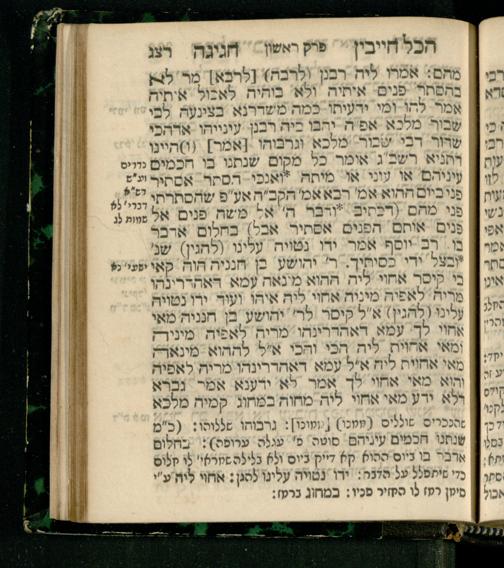 הכל חייבין פרק ראשון חגיגה רצג
מהם: אמרו ליה רבנן (לרבה) [לרבא] מר לא
בהסתר פנים איתיה ולא בוהיה לאכול איתיה
אמר להו ומי ידעיתו כמה משדרנא בצינעה לבי
שבור מלכא אפ״ה יהבו ביה רבנן עינייהו אדהכי
שדור דבי שבור מלכא וגרבוהו [אמר] (ו)היינו
דתניא רשב״ג אומר כל מקום שנתנו בו חכמים
עיניהם או עוני או מיתה *ואנכי הסתר אסתיר
פני ביום ההוא אמ׳ רבא אמ׳ הקב״ה אע״פ שהסתרתי
פני מהם (דכתיב *ודבר ה׳ אל משה פנים אל
פנים אותם הפנים אסתיר אבל) בחלום אדבר
בו רב יוסף אמר ידו נטויה עלינו (להגין) שנ׳
*ובצל ידי כסיתיך. ר׳ יהושע בן חנניה הוה קאי
בי קיסר אחוי ליה ההוא מינאה עמא דאהדרינהו
מריה לאפיה מיניה אחוי ליה איהו ועוד ידו נטויה
עלינו (להגין) א״ל קיסר לר׳ יהושע בן חנניה מאי
אחוי לך עמא דאהדרינהו מריה לאפיה מיניה
ומאי אחוית ליה הכי והכי א״ל לההוא מינאה
מאי אחוית ליה א״ל עמא דאהדרינהו מריה לאפיה
והוא מאי אחוי לך אמר לא ידענא אמר גברא
דלא ידע מאי אחוי ליה מחוה במחוג קמיה מלכא
שהנכרים שוללים גרבוהו שללוהו: (כ״מ
שנתנו חכמים עיניהם סוטה פ׳ עגלה ערופה): בחלום
אדבר בו ביום ההוא קא דייק ביום ולא בלילה
כדי שיתפלל על הדבר: ידו נטויה עלינו להגן: אחוי ליה ע״י
סימן רמז לו החזיר פניו: במחוג ברמז:
נדרים
דברי׳ לא
שמות לג
ישעי׳ נא